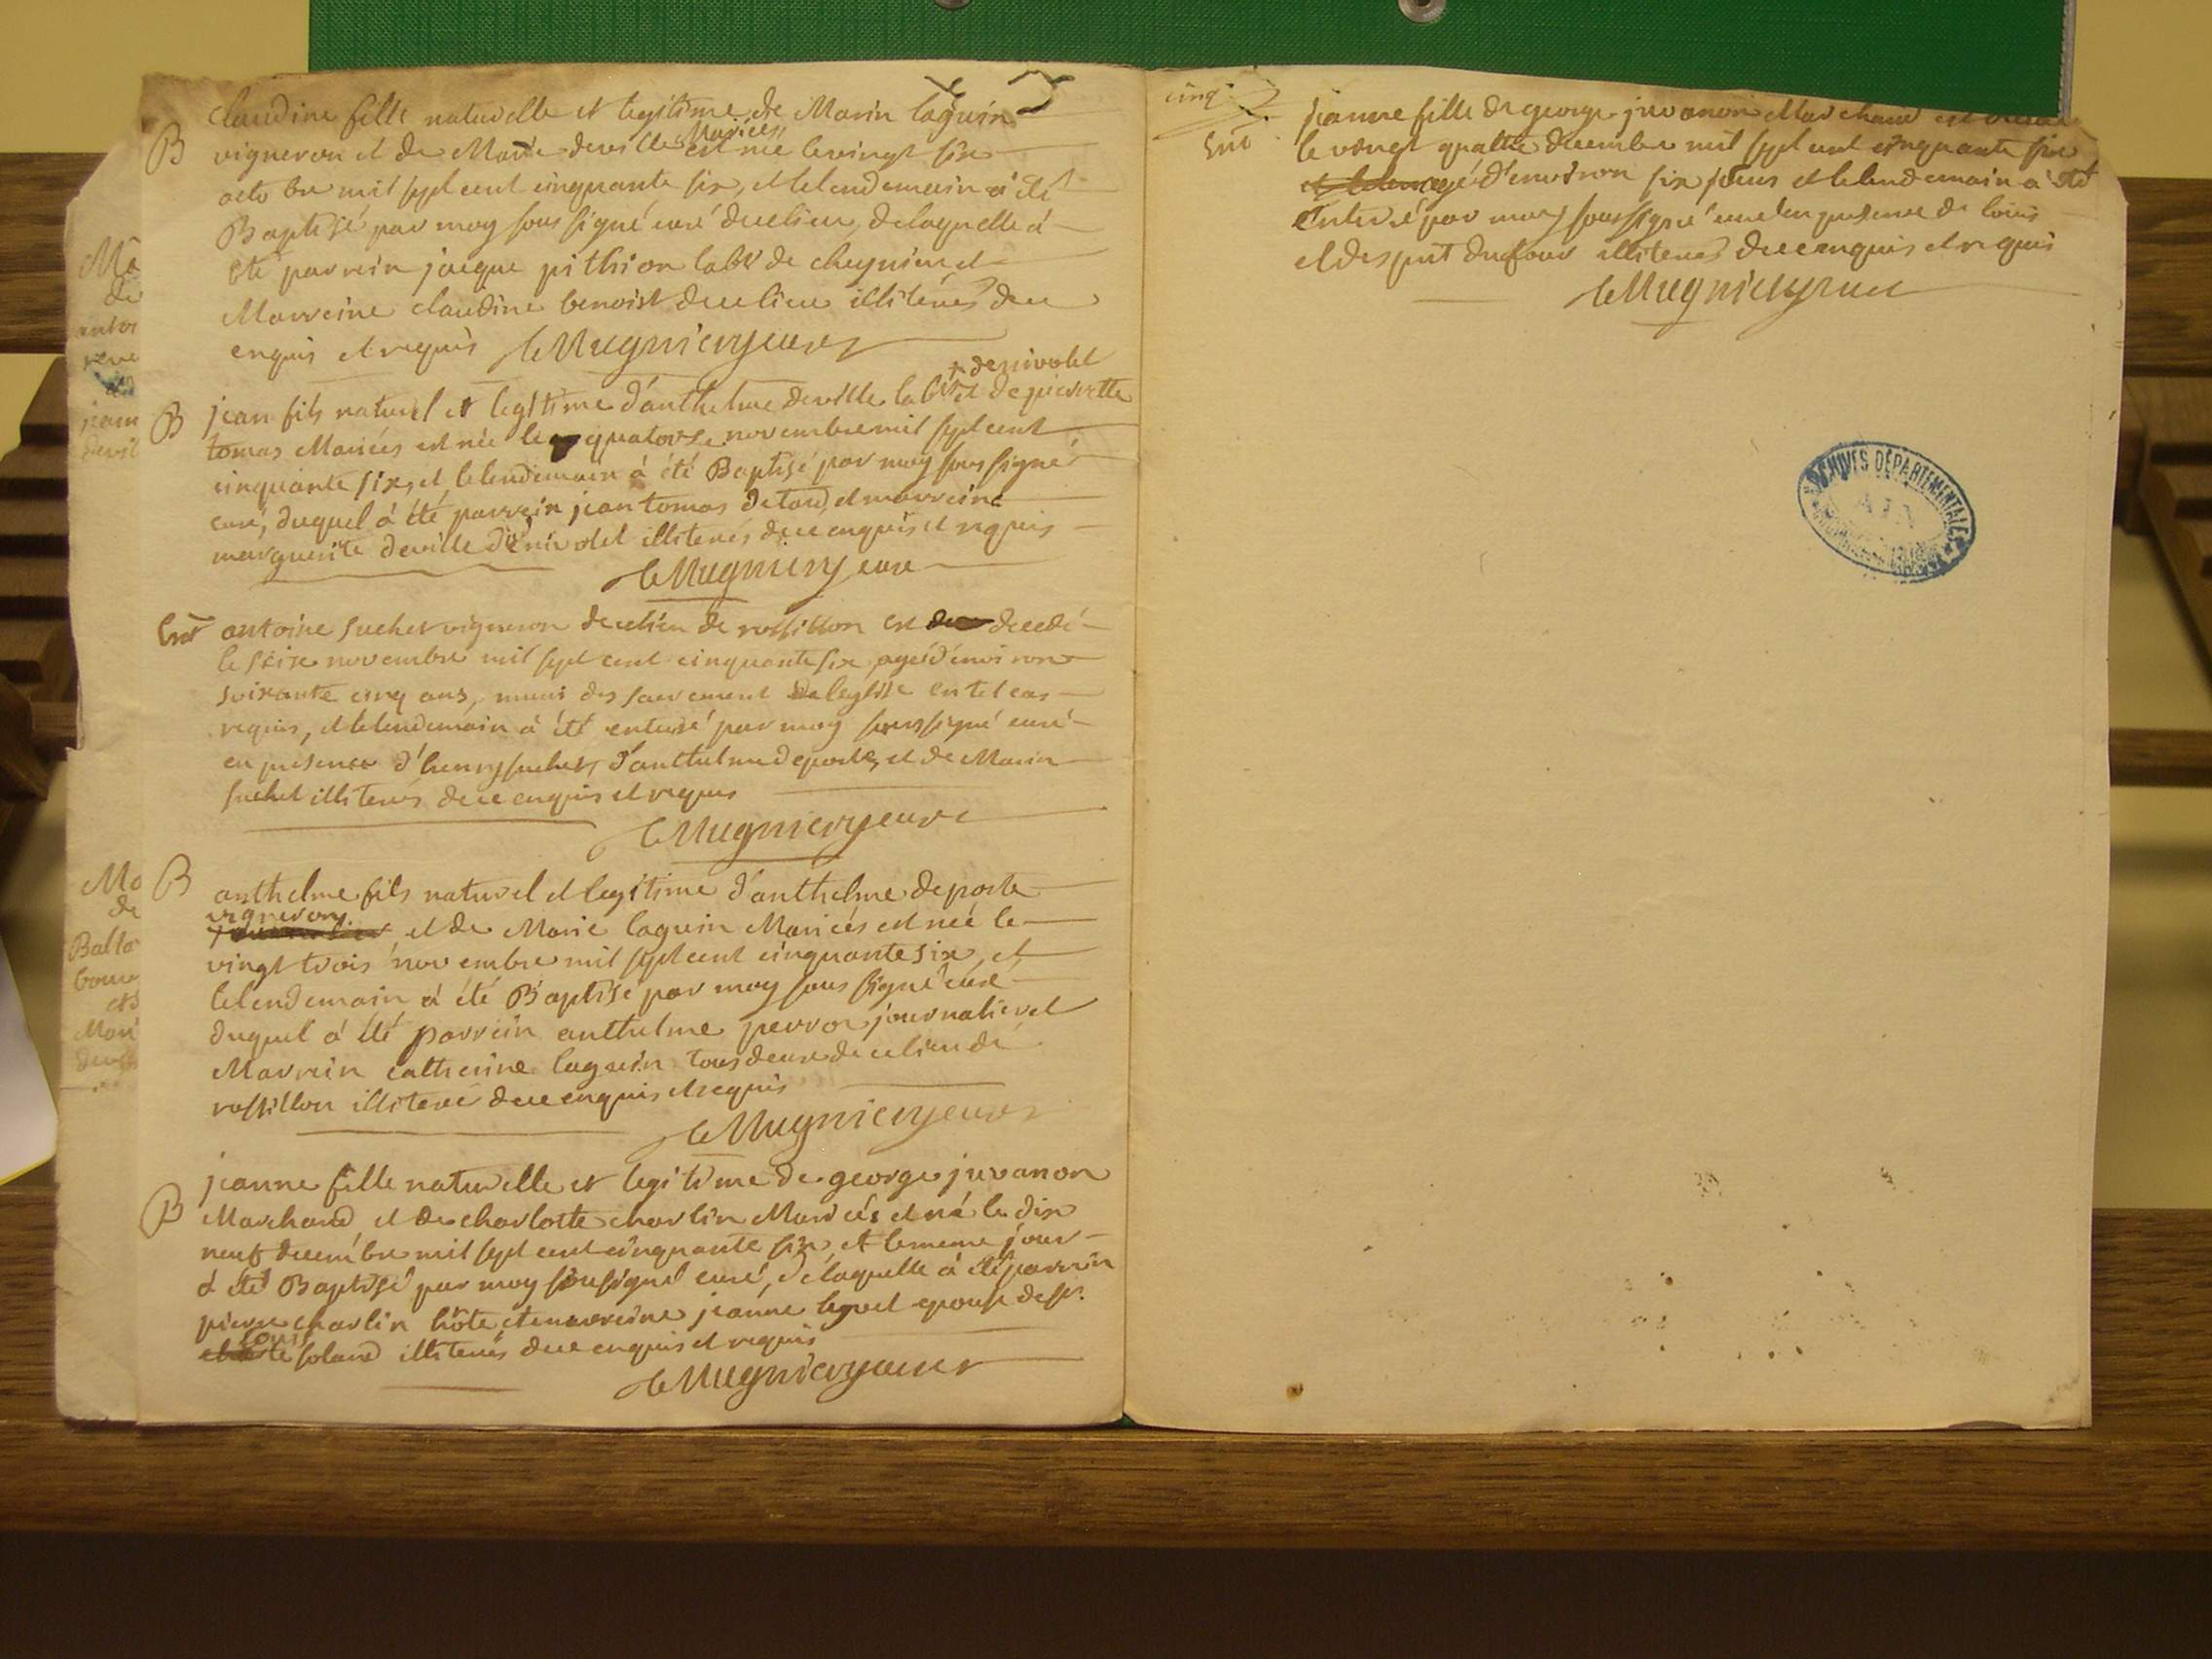 claudine fille naturelle et legitime de Marin laguin
B vigneron et de Marie deville Mariées est née le vingt six
octobre mil sept cent cinquante six, et le lendemain à été
Baptisé par moy sous signé curé de ce lieu, de laquelle à
été parrein jacque pithion labr de cheynieu et
Marreine claudine benoist de ce lieu illiterés de ce
enquis et requis le Mugnier curé
+ de nivolet
B jean fils naturel et legitime d'anthelme deville labr + et de pierrette
tomas Mariées est née le quatorze novembre mil sept cent
cinquante six, et le lendemain à été Baptisé par moy sous signé
curé, duquel à été parrein jean tomas et marreine
marguerite deville de nivolet illiterés de ce enquis et requis
le Mugnier curé
Ent antoine suchet vigneron de ce lieu de rossillon est decedé
le seize novembre mil sept cent cinquante six agé d'environ
soixante cinq ans, muni des sacrement de leglise en tel cas
requis, et le lendemain à été enterré par moy soussigné curé
en presence d'henry suchet, d'anthelme deporte, et de Marin
suchet illiterés de ce enquis et requis
le Mugnier curé
B anthelme fils naturel et legitime d'anthelme deporte
vigneron et de Marie laguin Mariées est née le
vingt trois novembre mil sept cent cinquante six, et
le lendemain à été Baptisé par moy sous signé curé
duquel à été parrein anthelme perron journalier et
Marrein catherine laguin tous deux de ce lieu de
rossillon illiteré de ce enquis et requis
le Mugnier curé
jeanne fille naturelle et legitime de george juvanon
B Marchand et de charlotte charlin Mariées et né le dix
neuf decembre mil sept cent cinquante six et le meme jour
à été Baptisé par moy sousigné curé, de laquelle à été parrein
pierre charlin hôte et marreine jeanne epouse de sr
louis soland illiterés de ce enquis et requis
le Mugnier curé
cinq
jeanne fille de george juvanon Marchand est
Ent le vingt quatre decembre mil sept cent cinquante six
agé d'environ six jours et le lendemain à été
enterré par moy soussigné curé en presence de louis
et desprit dufour illiterés de ce enquis et requis
le Mugnier curé
ARCHIVES DÉPARTEMENTALES
AIN